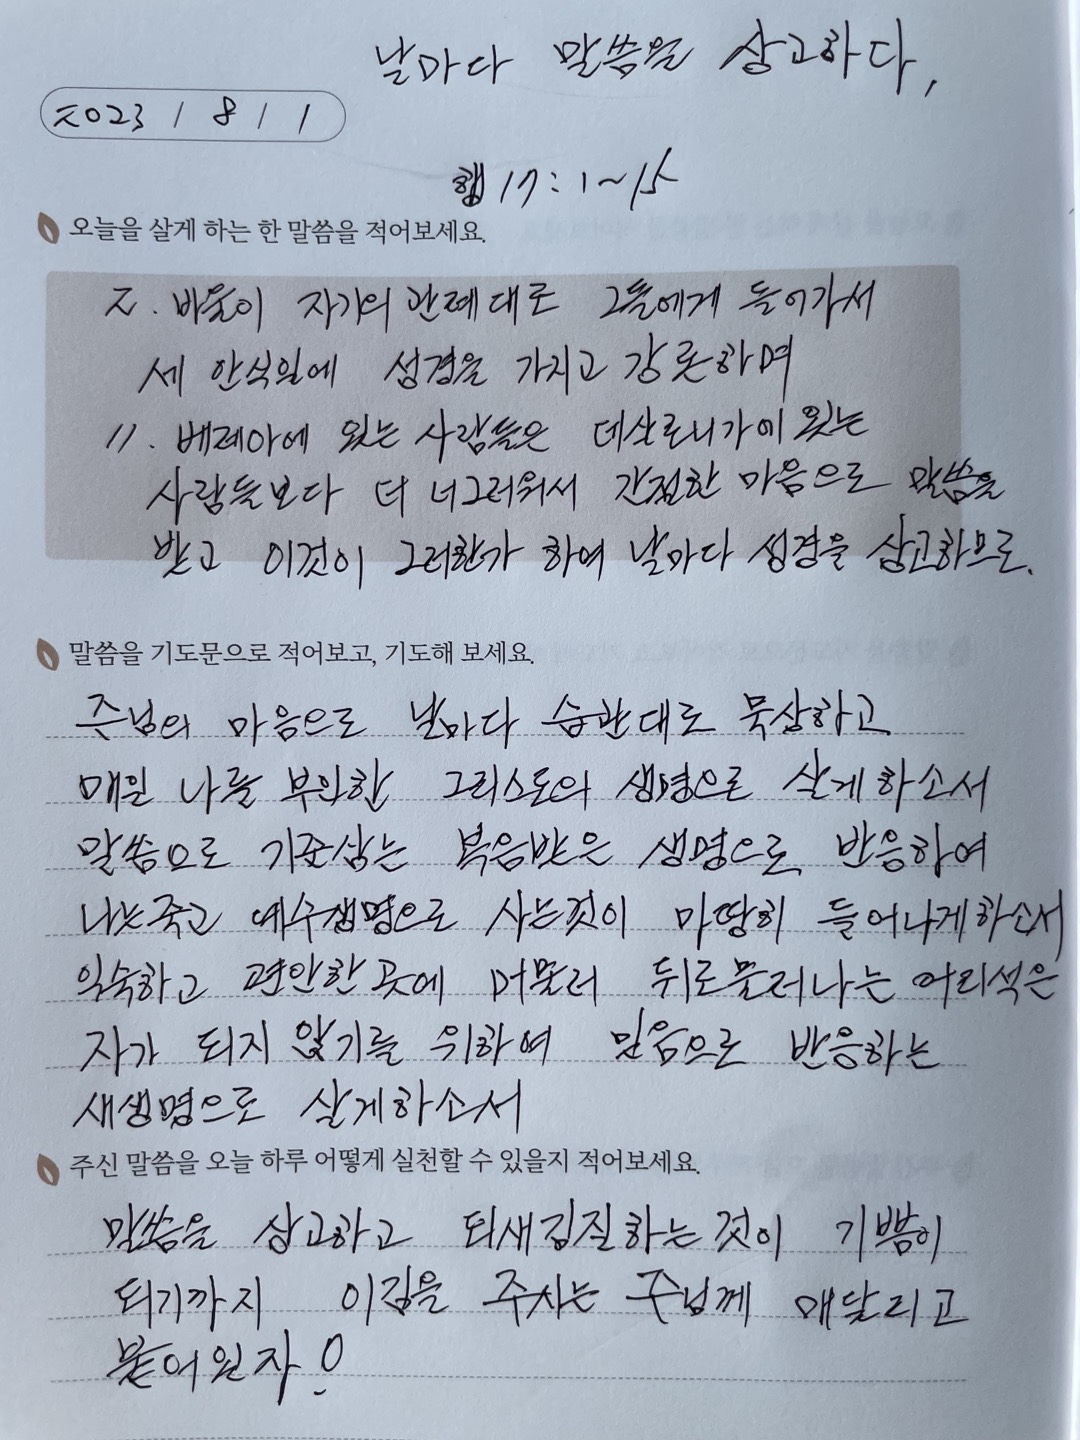 날마다 말씀을 상고하다,
2023 / 8 / 1
행 17 : 1~15
오늘을 살게 하는 한 말씀을 적어보세요.
2. 바울이 자기의 관례대로 그들에게 들어가서
세 안식일에 성경을 가지고 강론하며
11. 베레아에 있는 사람들은 데살로니가에 있는
사람들보다 더 너그러워서 간절한 마음으로 말씀을
받고 이것이 그러한가 하여 날마다 성경을 상고하므로.
말씀을 기도문으로 적어보고, 기도해 보세요.
주님의 마음으로 날마다 습관대로 묵상하고
매일 나를 부인한 그리스도의 생명으로 살게 하소서
말씀으로 기준삼는 복음받은 생명으로 반응하여
나는 죽고 예수생명으로 사는것이 마땅히 들어나게하소서
익숙하고 편안한 곳에 머물러 뒤로물러나는 어리석은
자가 되지 않기를 위하여 믿음으로 반응하는
새생명으로 살게하소서
주신 말씀을 오늘 하루 어떻게 실천할 수 있을지 적어보세요.
말씀을 상고하고 되새김질하는 것이 기쁨이
되기까지 이김을 주시는 주님께 매달리고